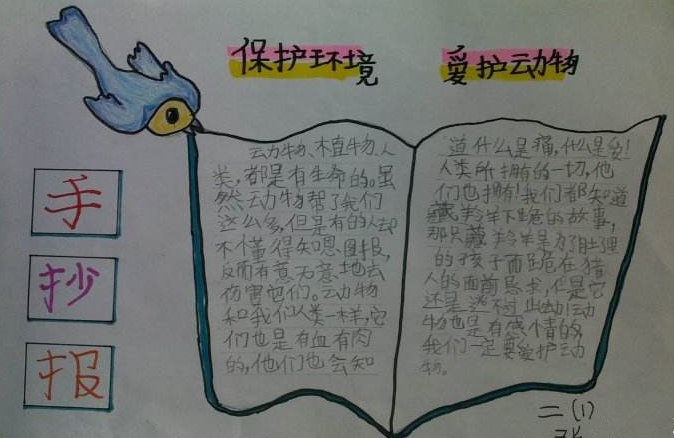 保护环境 爱护动物
手
抄
报
动物、植物、人
类，都是有生命的。虽
然动物帮了我们
这么多，但是有的人却
不懂得知恩图报，
反而有意无意地去
伤害它们。动物
和我们人类一样，它
们也是有血有肉
的，他们也会知
道什么是痛，什么是爱！
人类所拥有的一切，他
们也拥有！我们都知道
藏羚羊下跪的故事，
那只藏羚羊是为了肚里
的孩子而跪在猎
人的面前恳求，但是它
还是逃不过此劫动
物也是有感情的，
我们一定要爱护动
物。
二（1）